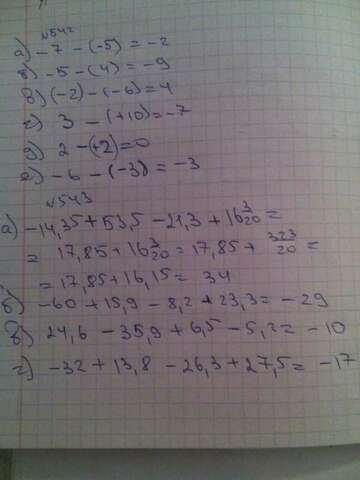 №542
а) -7 - (-5) = -2
б) -5 - (4) = -9
в) (-2) - (-6) = 4
г) 3 - (+10) = -7
д) 2 - (+2) = 0
е) -6 - (-3) = -3
№543
а) -14,35 + 53,5 - 21,3 + 16 3/20 =
= 17,85 + 16 3/20 = 17,85 + 323/20 =
= 17,85 + 16,15 = 34
б) -60 + 15,9 - 8,2 + 23,3 = -29
в) 24,6 - 35,9 + 6,5 - 5,2 = -10
г) -32 + 13,8 - 26,3 + 27,5 = -17